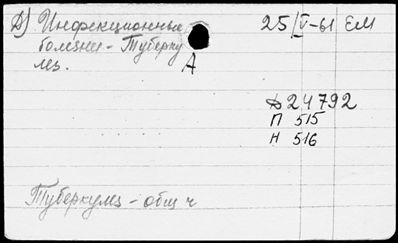 А) Инфекционные
болезни - Туберку
лез.
А
25/V-61 ЕМ
Б24792
П 515
Н 516
Туберкулез - общ ч